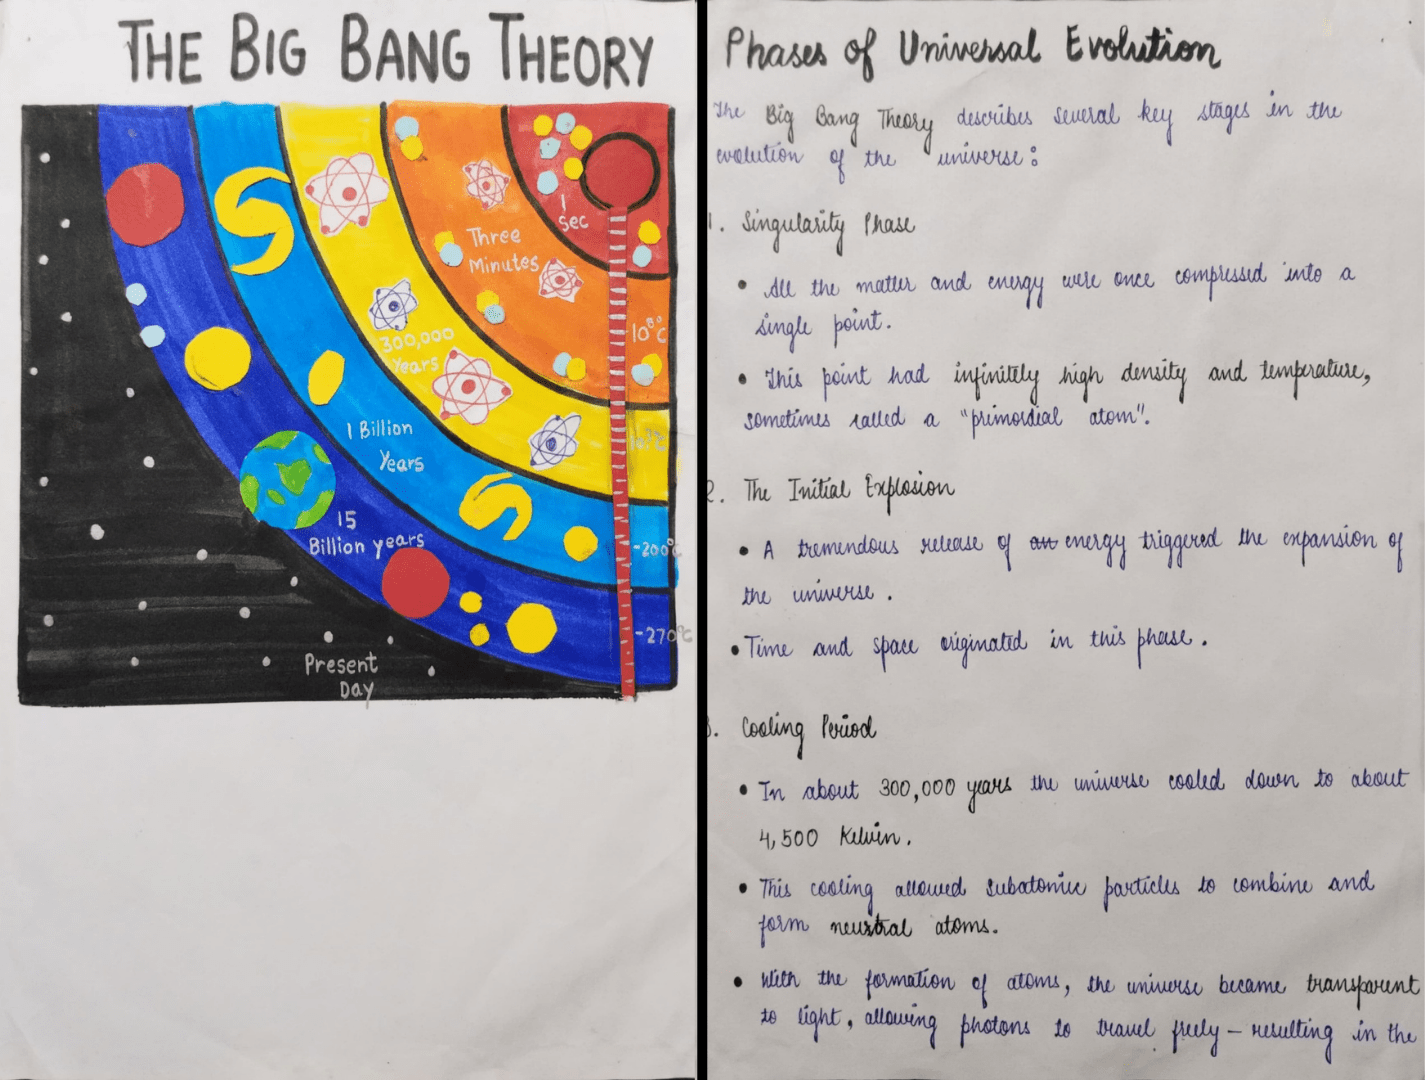 THE BIG BANG THEORY
1
Sec
Three
Minutes
10⁸°C
300,000
Years
1 Billion
Years
-200°C
15
Billion years
-270°C
Present
Day
Phases of Universal Evolution
The Big Bang Theory describes several key stages in the
evolution of the universe:
1. Singularity Phase
• All the matter and energy were once compressed into a
single point.
• This point had infinitely high density and temperature,
sometimes called a "primordial atom".
2. The Initial Explosion
• A tremendous release of energy triggered the expansion of
the universe.
• Time and space originated in this phase.
3. Cooling Period
• In about 300,000 years the universe cooled down to about
4,500 Kelvin.
• This cooling allowed subatomic particles to combine and
form neutral atoms.
• With the formation of atoms, the universe became transparent
to light, allowing photons to travel freely – resulting in the